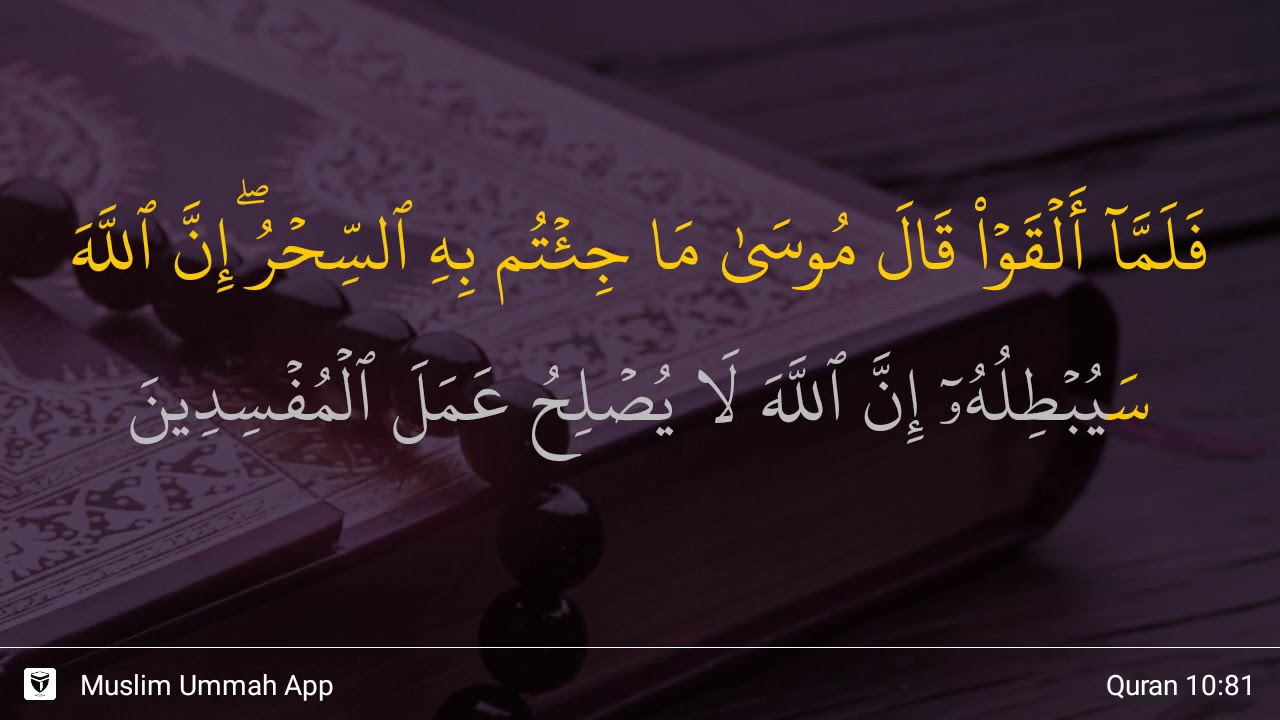 فَلَمَّآ أَلْقَوْا۟ قَالَ مُوسَىٰ مَا جِئْتُم بِهِ ٱلسِّحْرُ ۖ إِنَّ ٱللَّهَ
سَيُبْطِلُهُۥٓ إِنَّ ٱللَّهَ لَا يُصْلِحُ عَمَلَ ٱلْمُفْسِدِينَ
Muslim Ummah App
Quran 10:81